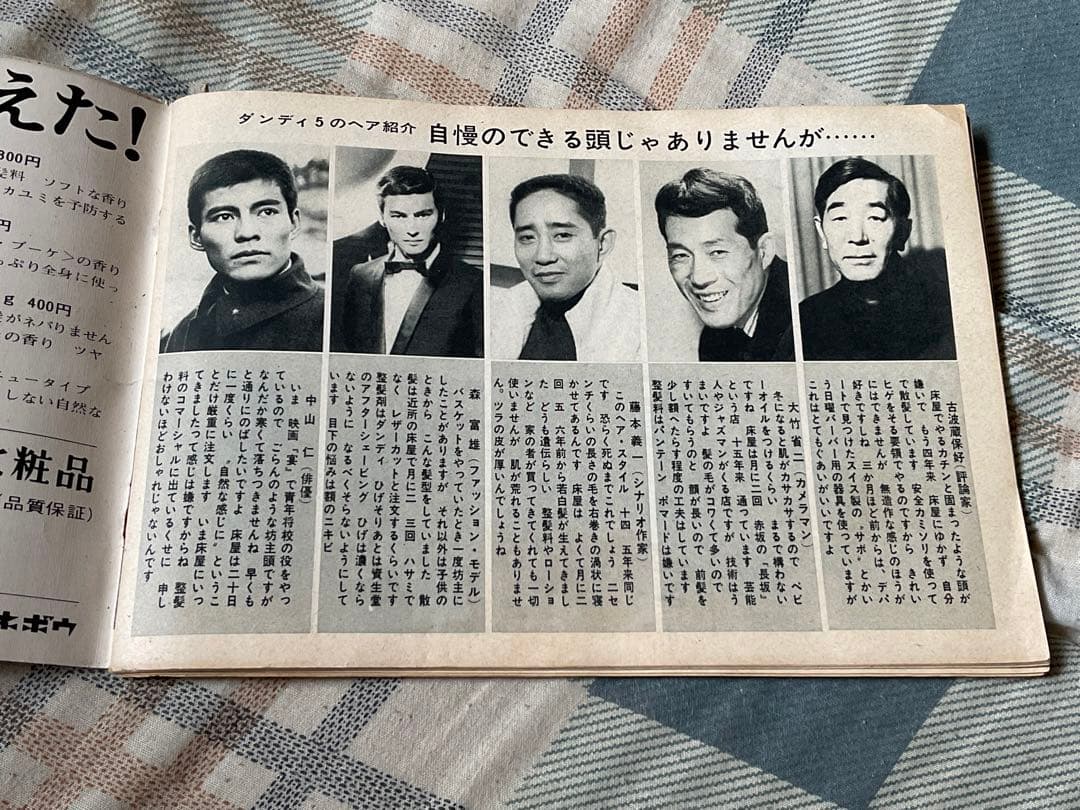 えた!
300円
髪料 ソフトな香り
カユミを予防する
円
・ブーケ>の香り
っぷり全身に使っ
g 400円
がネバりません
の香り ツヤ
ュータイプ
しない自然な
粧品
(品質保証)
ネボウ
ダンディ5のヘア紹介
自慢のできる頭じゃありませんが……
古波蔵保好(評論家)
床屋でやるカチンと固まったような頭が
嫌いで もう四年来 床屋にゆかず 自分
で散髪しています 安全カミソリを使って
ヒゲをそる要領でやるのですから きれい
にはできませんが 無造作な感じのほうが
好きですしね 三か月ほど前からは、デパ
ートで見つけたスイス製の〝サボ〟とかい
う日曜バーバー用の器具を使っていますが
これはとてもぐあいがいいですよ
大竹省二(カメラマン)
冬になると肌がカサカサするので ベビ
ーオイルをつけるくらい まるで構わない
ですね 床屋は月に二回 赤坂の「長坂」
という店 十五年来 通っています 芸能
人やジャズマンがくる店ですが 技術はう
まいですよ 髪の毛がコワくて多いので
すいてもらうのと 顔が長いので 前髪を
少し額へたらす程度の工夫はしています
整髪料はバンテーン ポマードは嫌いです
藤本義一(シナリオ作家)
このヘア・スタイル 十四 五年来同じ
です 恐らく死ぬまでこれでしょう 二セ
ンチくらいの長さの毛を右巻きの渦状に寝
かせてあるんです 床屋は よくて月に二
回 五 六年前から若白髪が生えてきまし
た どうも遺伝らしい 整髪料やローショ
ンなど 家の者が買ってきてくれても一切
使いませんが 肌が荒れることもありませ
ん。ツラの皮が厚いんでしょうね
森 富雄(ファッション・モデル)
バスケットをやっていたとき一度坊主に
したことがありますが それ以外は子供の
ときから こんな髪型をしていました 散
髪は近所の床屋で月に二 三回 ハサミで
なく レザーカットと注文するくらいです
整髪剤はダンディ ひげそりあとは資生堂
のアフターシェービング ひげは濃くなら
ないように なるべくそらないようにして
います 目下の悩みは額のニキビ
中山 仁(俳優)
いま 映画「宴」で青年将校の役をやっ
ているので ごらんのような坊主頭ですが
なんだか寒くて落ちつきませんね 早くも
と通りにのばしたいですよ 床屋は二十日
に一度くらい 〝自然な感じに〟というこ
とだけ厳重に注文します いま床屋にいっ
てきましたって感じは嫌ですからね 整髪
料のコマーシャルに出ているくせに 申し
わけないほどおしゃれじゃないんです